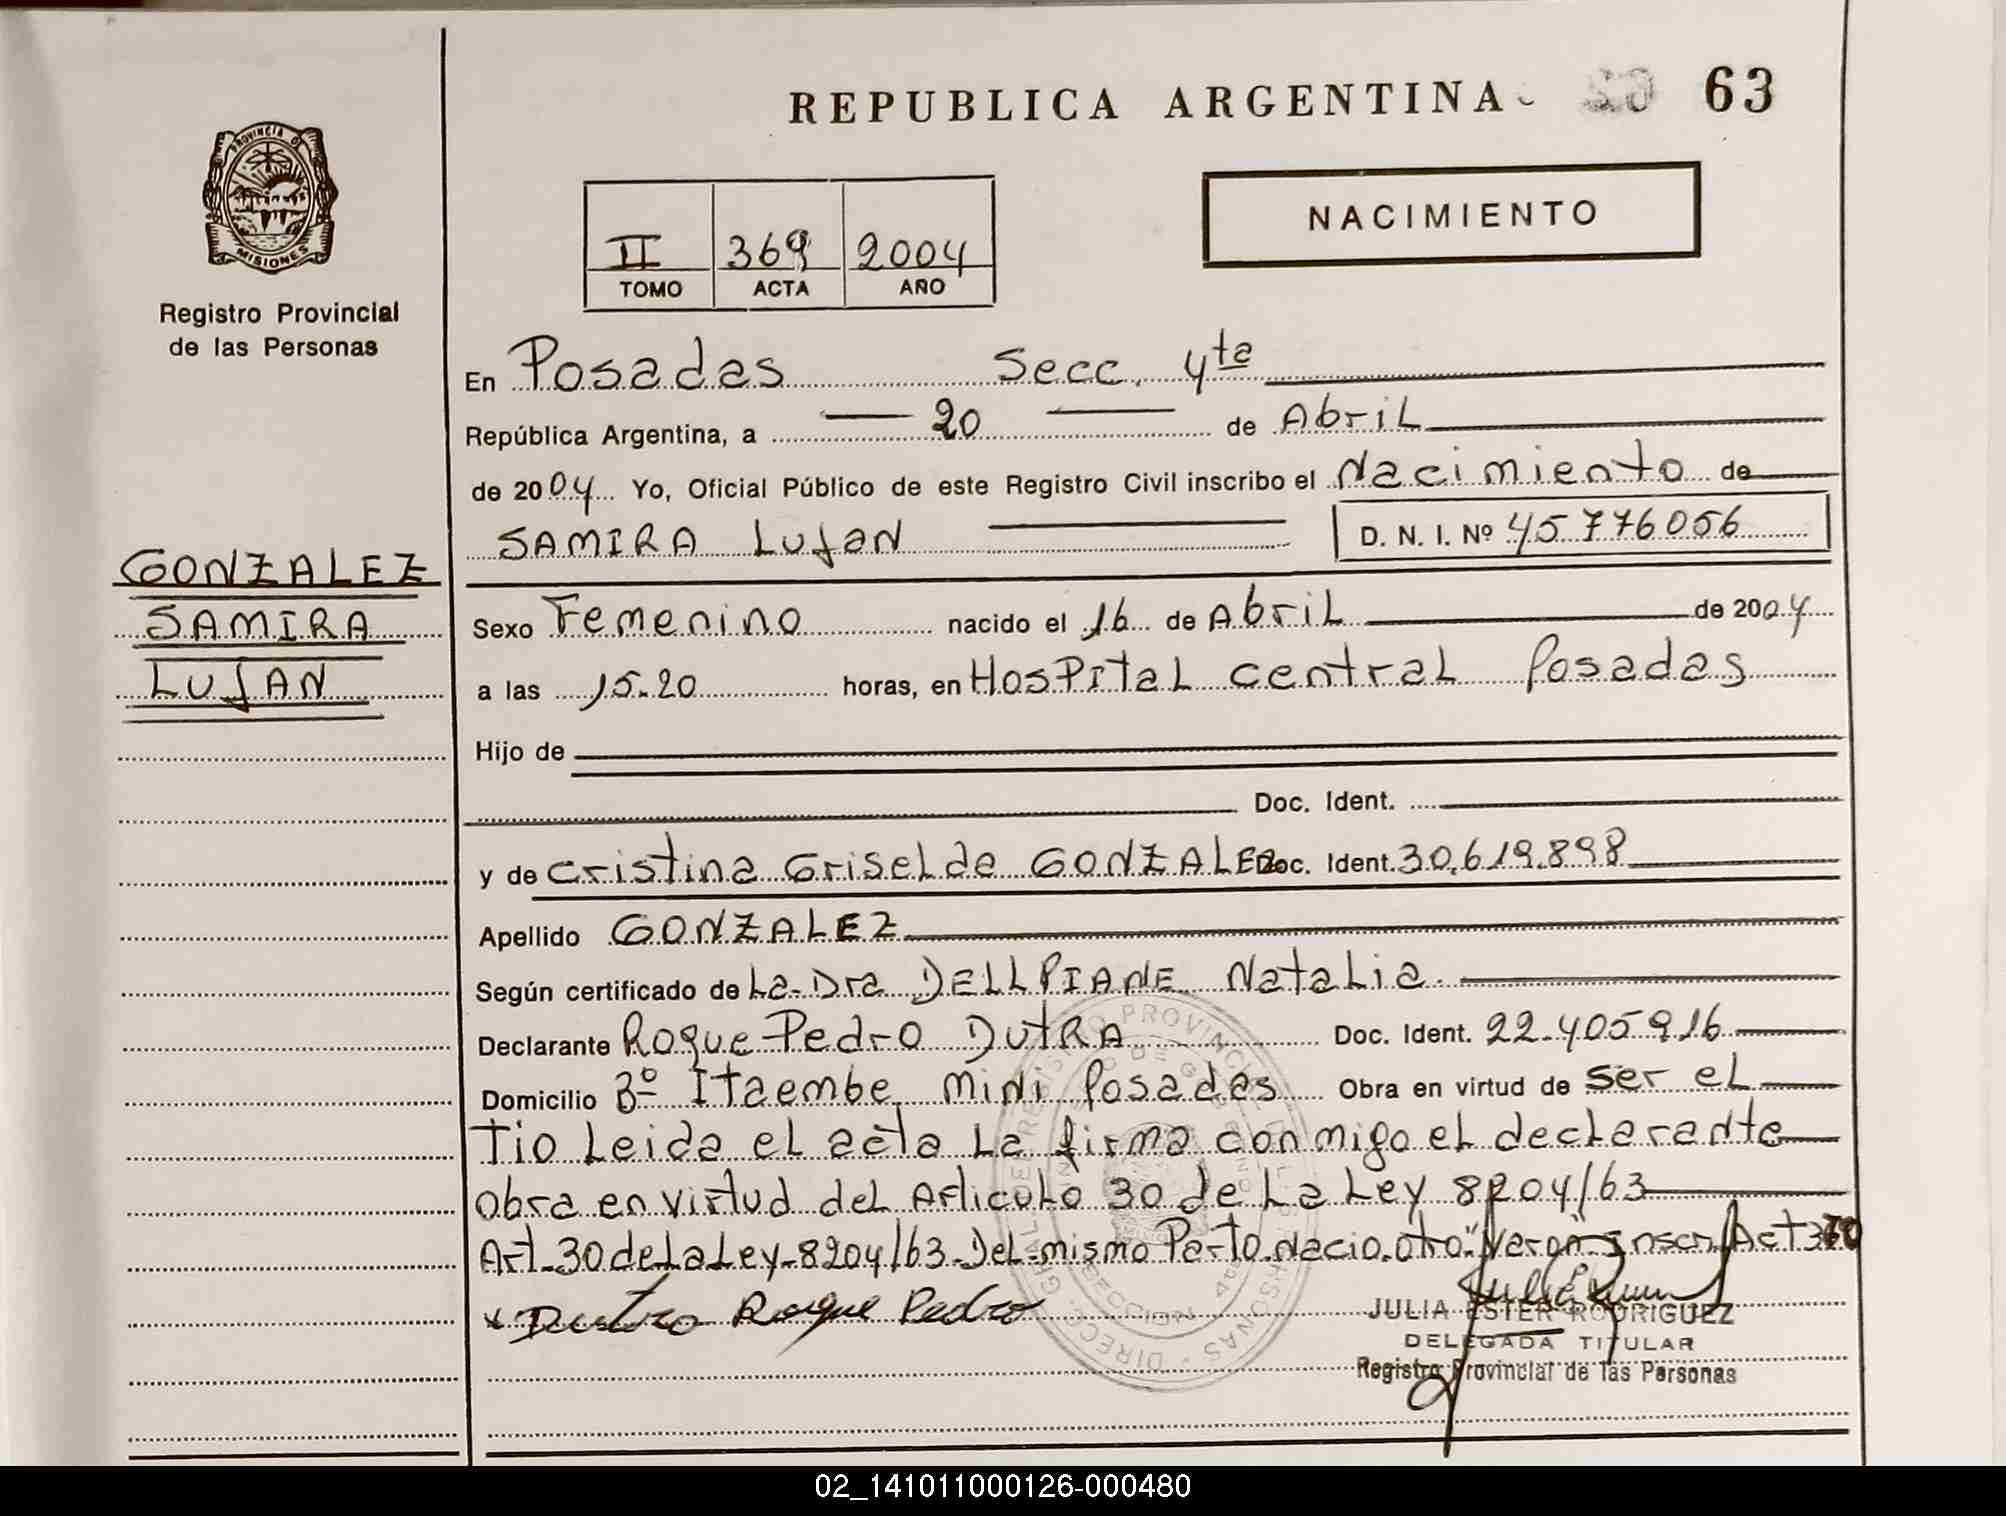 REPUBLICA ARGENTINA
63
PROVINCIA D
MISIONES
Registro Provincial
de las Personas
II 369 2004
TOMO ACTA AÑO
NACIMIENTO
En Posadas Secc. 4ta
República Argentina, a 20 de Abril
de 2004 Yo, Oficial Público de este Registro Civil inscribo el Nacimiento de
SAMIRA LuJaN D. N. I. Nº 45776056
GONZALEZ
SAMIRA
LUJAN
Sexo Femenino nacido el 16 de Abril de 2004
a las 15.20 horas, en HosPital central Posadas
Hijo de
Doc. Ident.
y de Cristina Griselda GONZALEZ Doc. Ident. 30.619.898
Apellido GONZALEZ
Según certificado de La Dra DELLPIANE Natalia.
Declarante Roque Pedro DutRA Doc. Ident. 22.405916
Domicilio Bº Itaembe mini Posadas Obra en virtud de ser el
Tio Leida el acta La firma conmigo el declarante
obra en virtud del Articulo 30 de La Ley 8204/63
Art. 30 de La Ley 8204/63 Del mismo Parto Nacio otro "Varon" Inscr. Act 370
Dutra Roque Pedro
JULIA ESTER RODRIGUEZ
DELEGADA TITULAR
Registro Provincial de las Personas
02_141011000126-000480